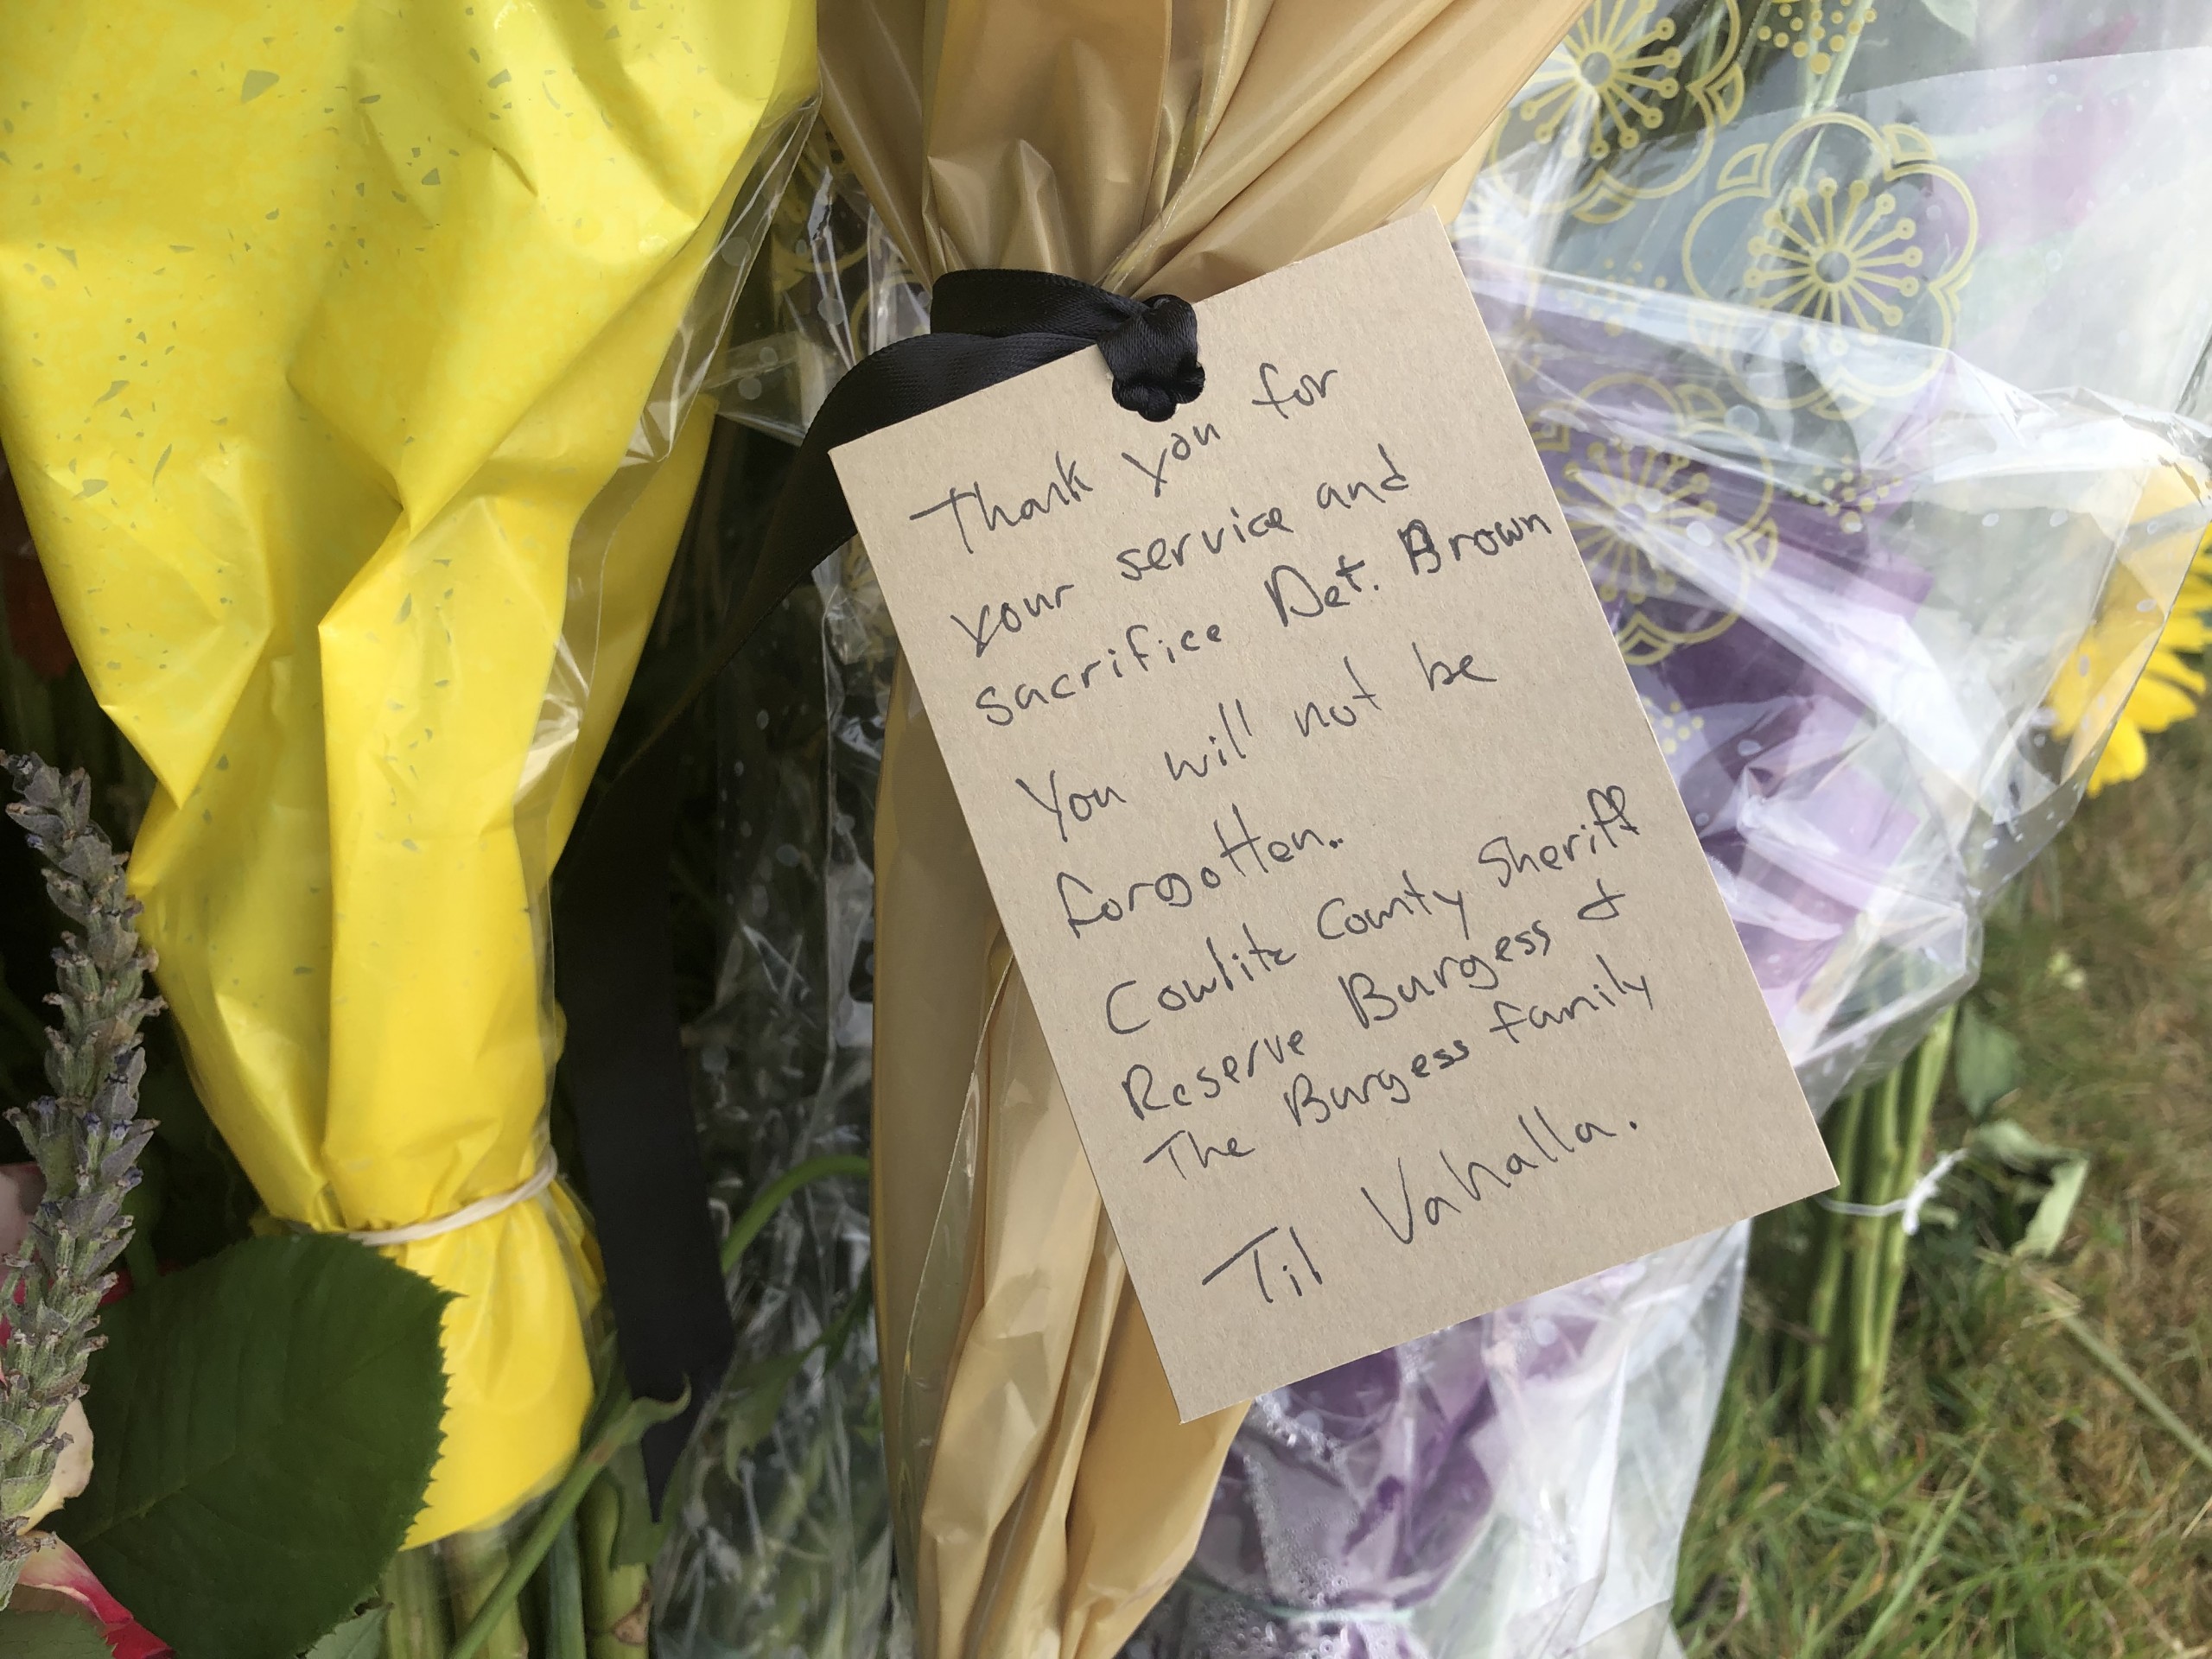 Thank you for
your service and
sacrifice Det. Brown
You will not be
forgotten.
Cowlitz County Sheriff
Reserve Burgess &
The Burgess family
Til Vahalla.